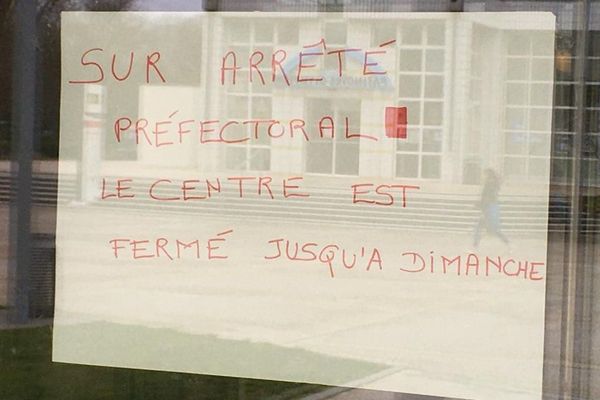 SUR ARRÊTÉ
PRÉFECTORAL
LE CENTRE EST
FERMÉ JUSQU'A DIMANCHE